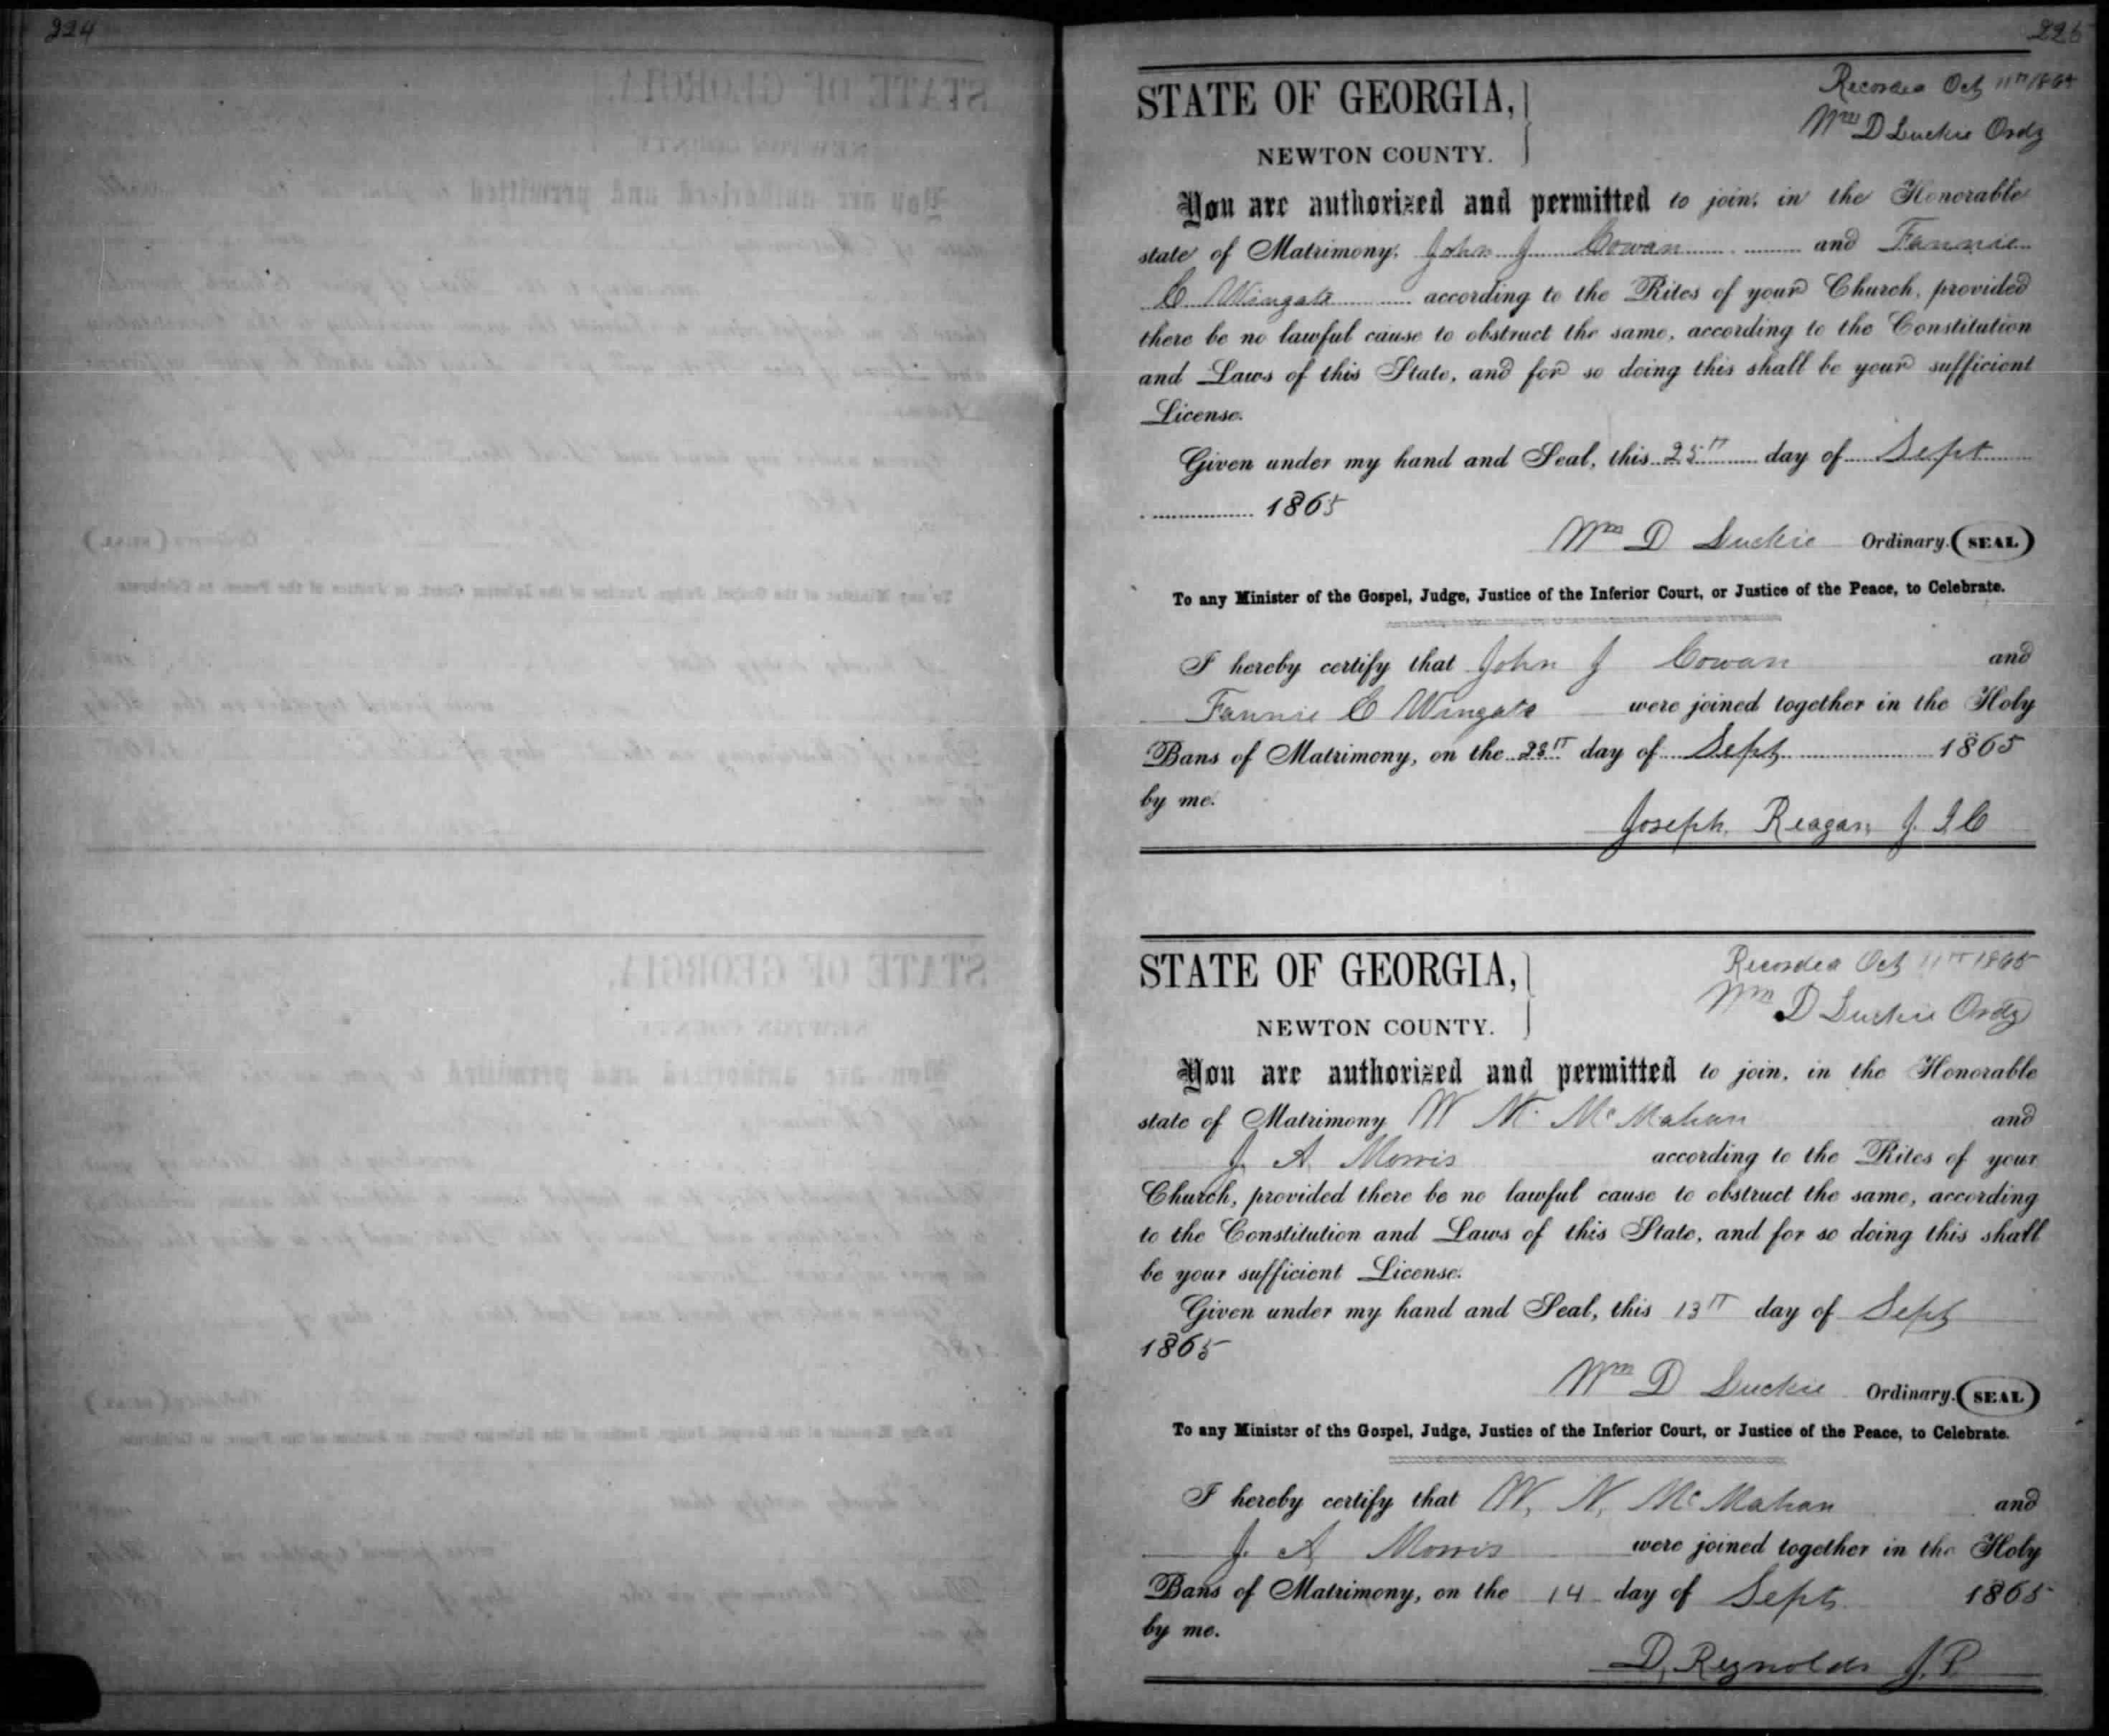 224
225
Recorded Oct 11th 1865
Wm D Luckie Ordy
STATE OF GEORGIA,
NEWTON COUNTY.
You are authorized and permitted to join, in the Honorable
state of Matrimony, John J Cowan and Fannie
C Wingate according to the Rites of your Church, provided
there be no lawful cause to obstruct the same, according to the Constitution
and Laws of this State, and for so doing this shall be your sufficient
License.
Given under my hand and Seal, this 25th day of Sept
1865
Wm D Luckie Ordinary. (SEAL)
To any Minister of the Gospel, Judge, Justice of the Inferior Court, or Justice of the Peace, to Celebrate.
I hereby certify that John J Cowan and
Fannie C Wingate were joined together in the Holy
Bans of Matrimony, on the 28th day of Sept 1865
by me.
Joseph Reagan J. I C
Recorded Oct 11th 1865
Wm D Luckie Ordy
STATE OF GEORGIA,
NEWTON COUNTY.
You are authorized and permitted to join, in the Honorable
state of Matrimony W N. McMahan and
J. A. Morris according to the Rites of your
Church, provided there be no lawful cause to obstruct the same, according
to the Constitution and Laws of this State, and for so doing this shall
be your sufficient License.
Given under my hand and Seal, this 13th day of Sept
1865
Wm D Luckie Ordinary. (SEAL)
To any Minister of the Gospel, Judge, Justice of the Inferior Court, or Justice of the Peace, to Celebrate.
I hereby certify that W. N. McMahan and
J. A Morris were joined together in the Holy
Bans of Matrimony, on the 14 day of Sept. 1865
by me.
D. Reynolds J. P